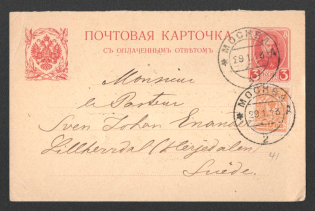 ПОЧТОВАЯ КАРТОЧКА
СЪ ОПЛАЧЕННЫМЪ ОТВѢТОМЪ.
МОСКВА
29 1
3
3
Monsieur
le Pasteur
Sven Johan
МОСКВА
29 1
2
Lillherrdal (Herjedalen)
Suède.
41